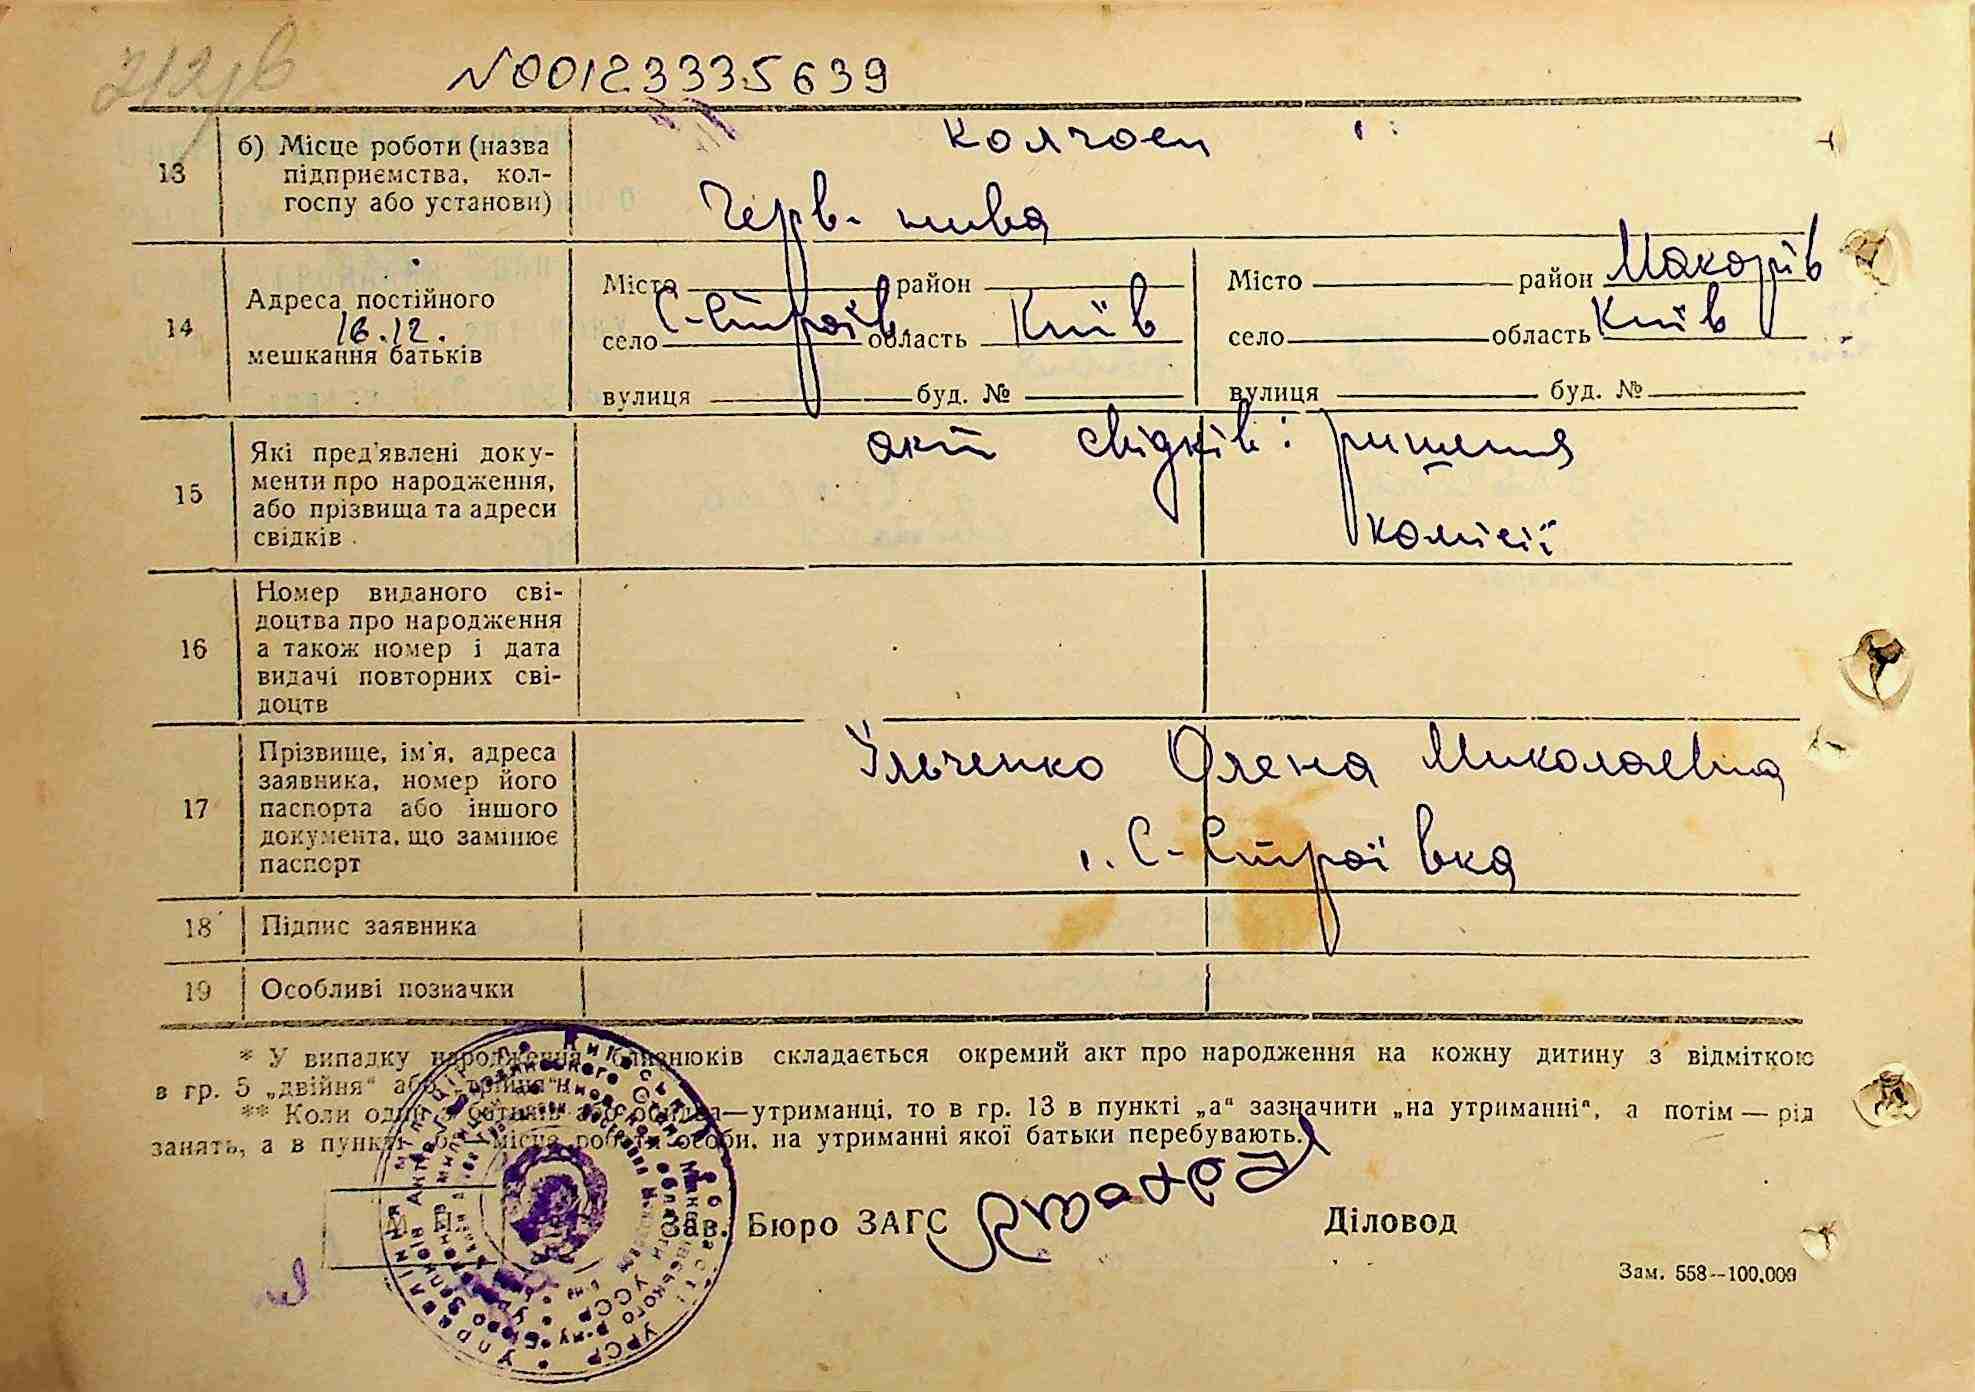 №00123335639
13
б) Місце роботи (назва
підприємства, кол-
госпу або установи)
колгосп
Черв. нива
14
Адреса постійного
16.12.
мешкання батьків
Місто район
село С-Строїв. область Київ
вулиця буд. №
Місто район Макарів
село область Київ
вулиця буд. №
15
Які пред'явлені доку-
менти про народження,
або прізвища та адреси
свідків
акт свідків і рішення
комісії
16
Номер виданого сві-
доцтва про народження
а також номер і дата
видачі повторних сві-
доцтв
17
Прізвище, ім'я, адреса
заявника, номер його
паспорта або іншого
документа, що замінює
паспорт
Ільченко Олена Миколаевна
С-Строївка
18
Підпис заявника
19
Особливі позначки
* У випадку народження близнюків складається окремий акт про народження на кожну дитину з відміткою
в гр. 5 „двійня“ або „трійня“.
** Коли один з батьків або обидва—утриманці, то в гр. 13 в пункті „а“ зазначити „на утриманні“, а потім — рід
занять, а в пункті „б“ місце роботи особи, на утриманні якої батьки перебувають.
М. П.
Зав. Бюро ЗАГС
Діловод
Зам. 558—100.000